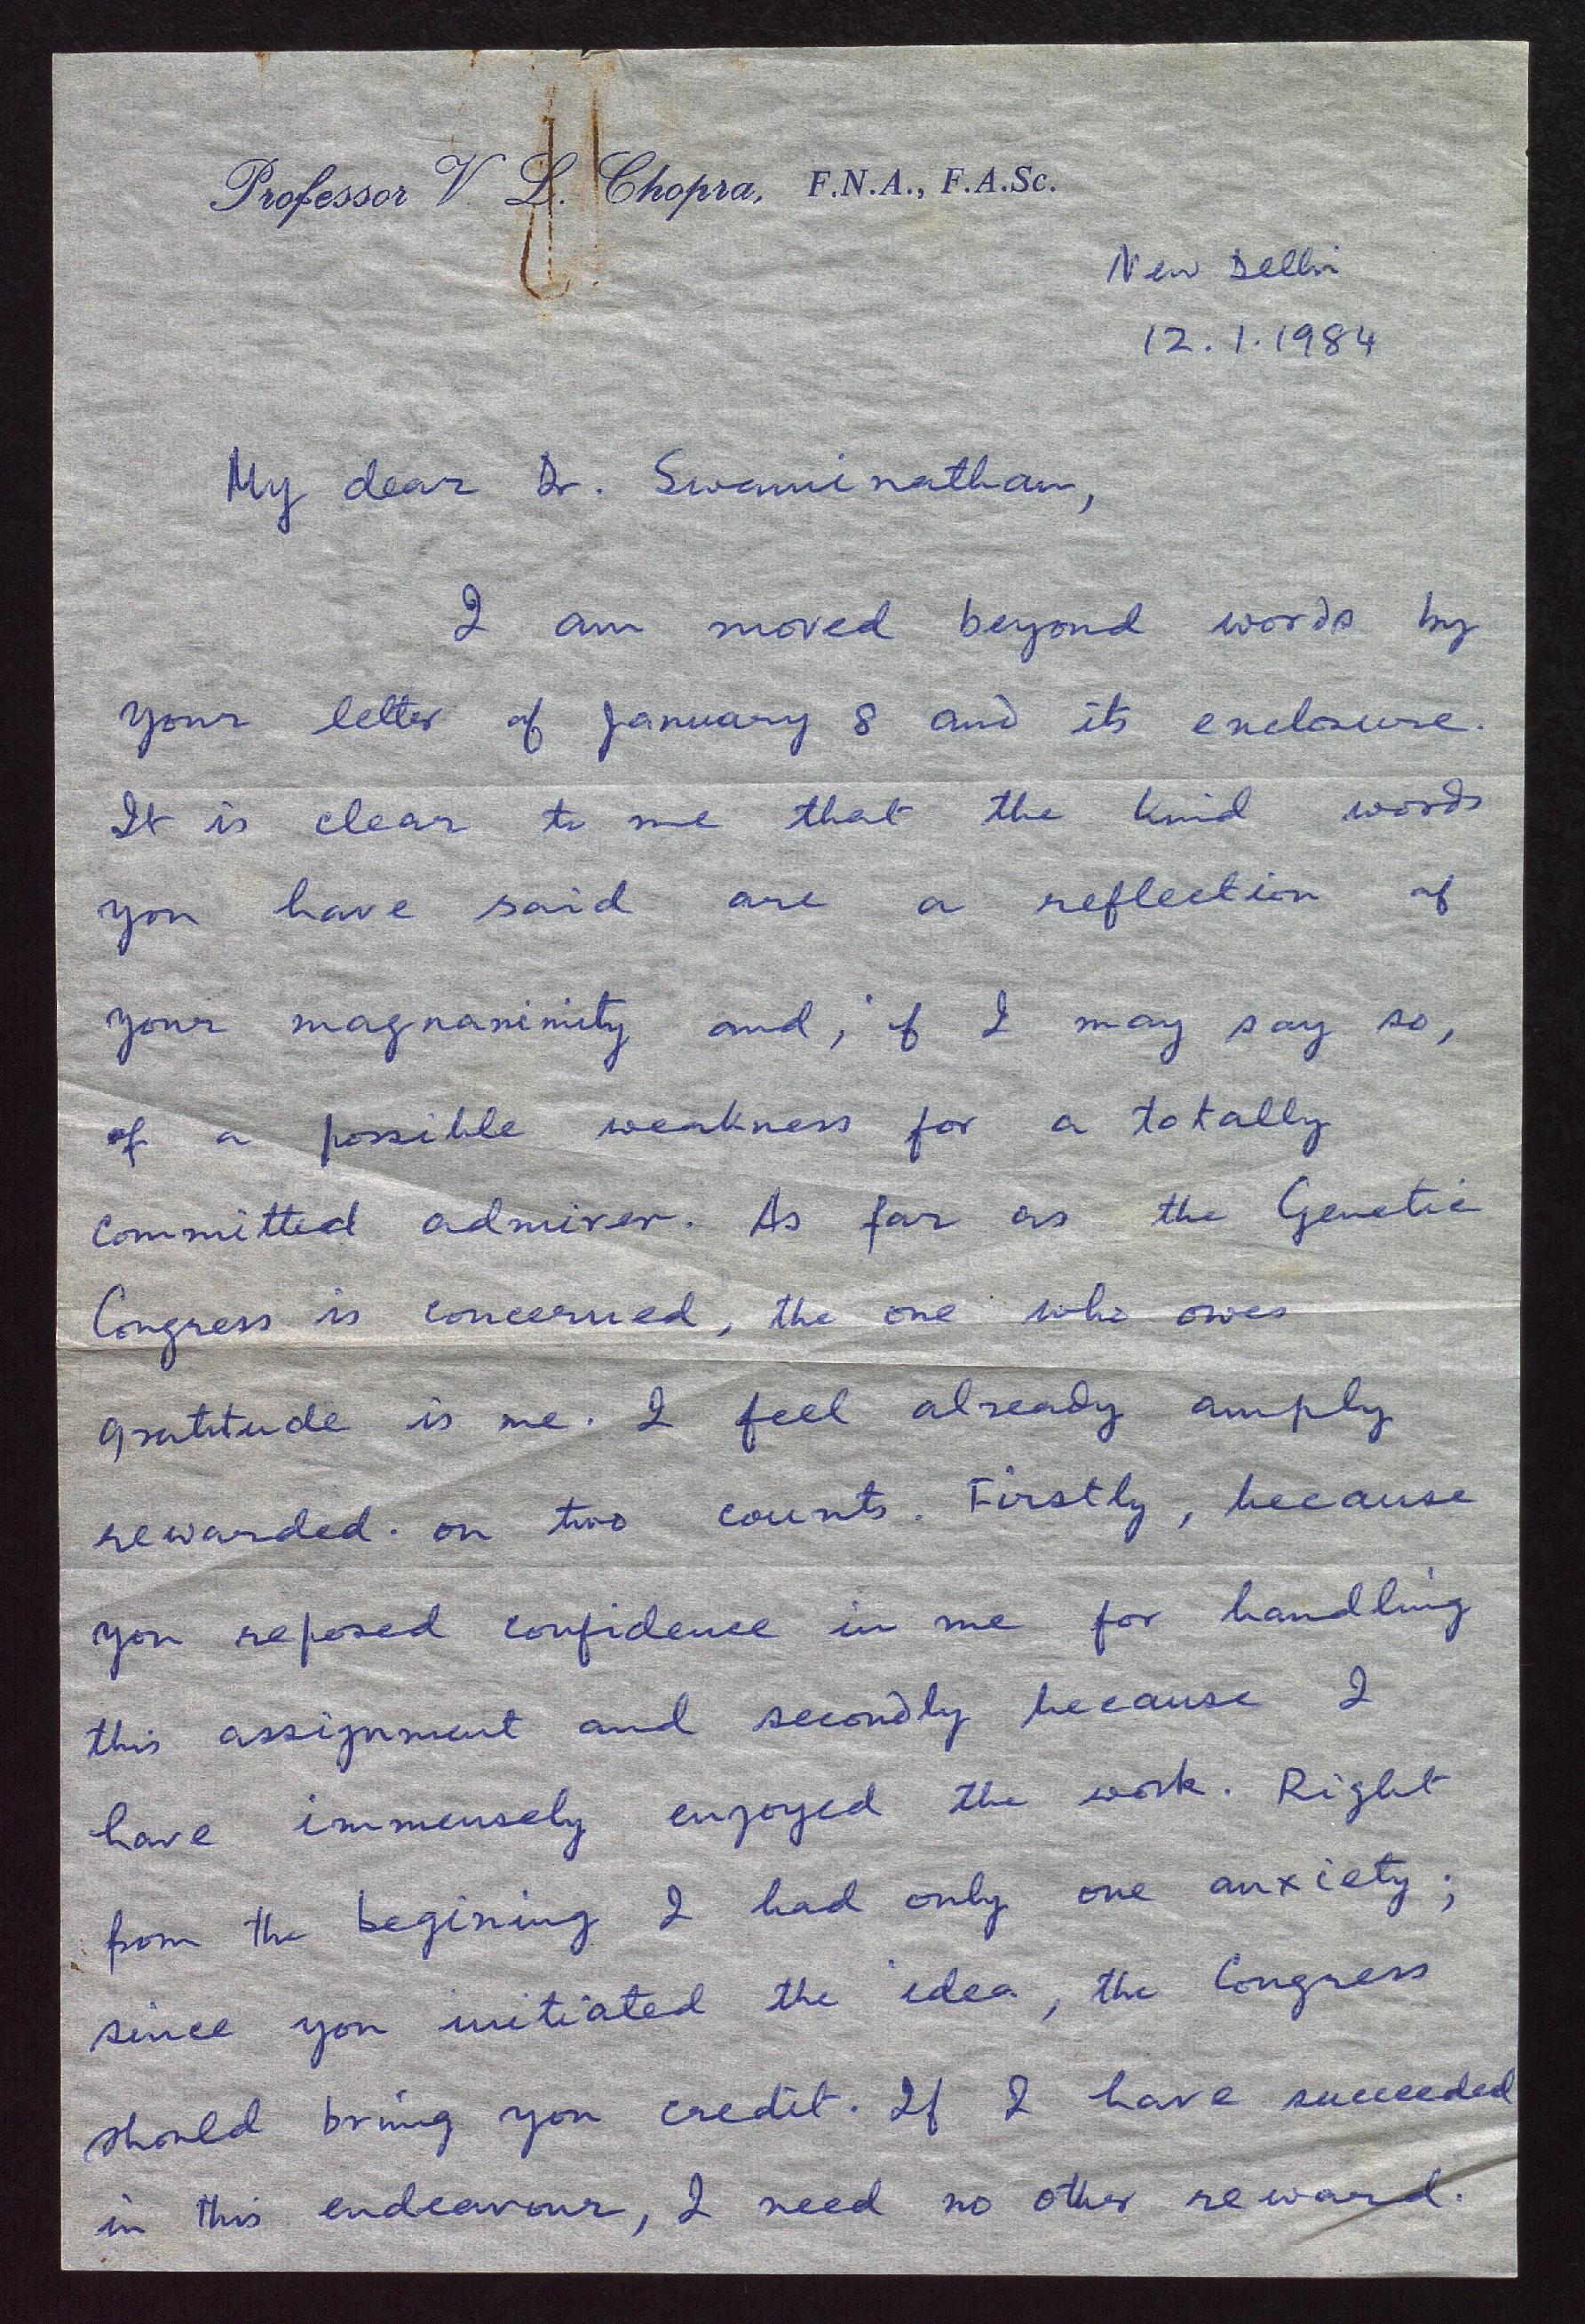 Professor V. L. Chopra, F.N.A., F.A.Sc.
New Delhi
12.1.1984
My dear Dr. Swaminathan,
I am moved beyond words by
your letter of January 8 and its enclosure.
It is clear to me that the kind words
you have said are a reflection of
your magnanimity and, if I may say so,
of a possible weakness for a totally
committed admirer. As far as the Genetic
Congress is concerned, the one who owes
gratitude is me. I feel already amply
rewarded. on two counts. Firstly, because
you reposed confidence in me for handling
this assignment and secondly because I
have immensely enjoyed the work. Right
from the begining I had only one anxiety;
since you initiated the idea, the Congress
should bring you credit. If I have succeeded
in this endeavour, I need no other reward.